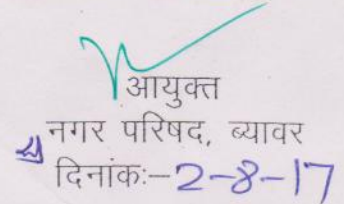 आयुक्त
नगर परिषद, ब्यावर
दिनांक:-2-8-17